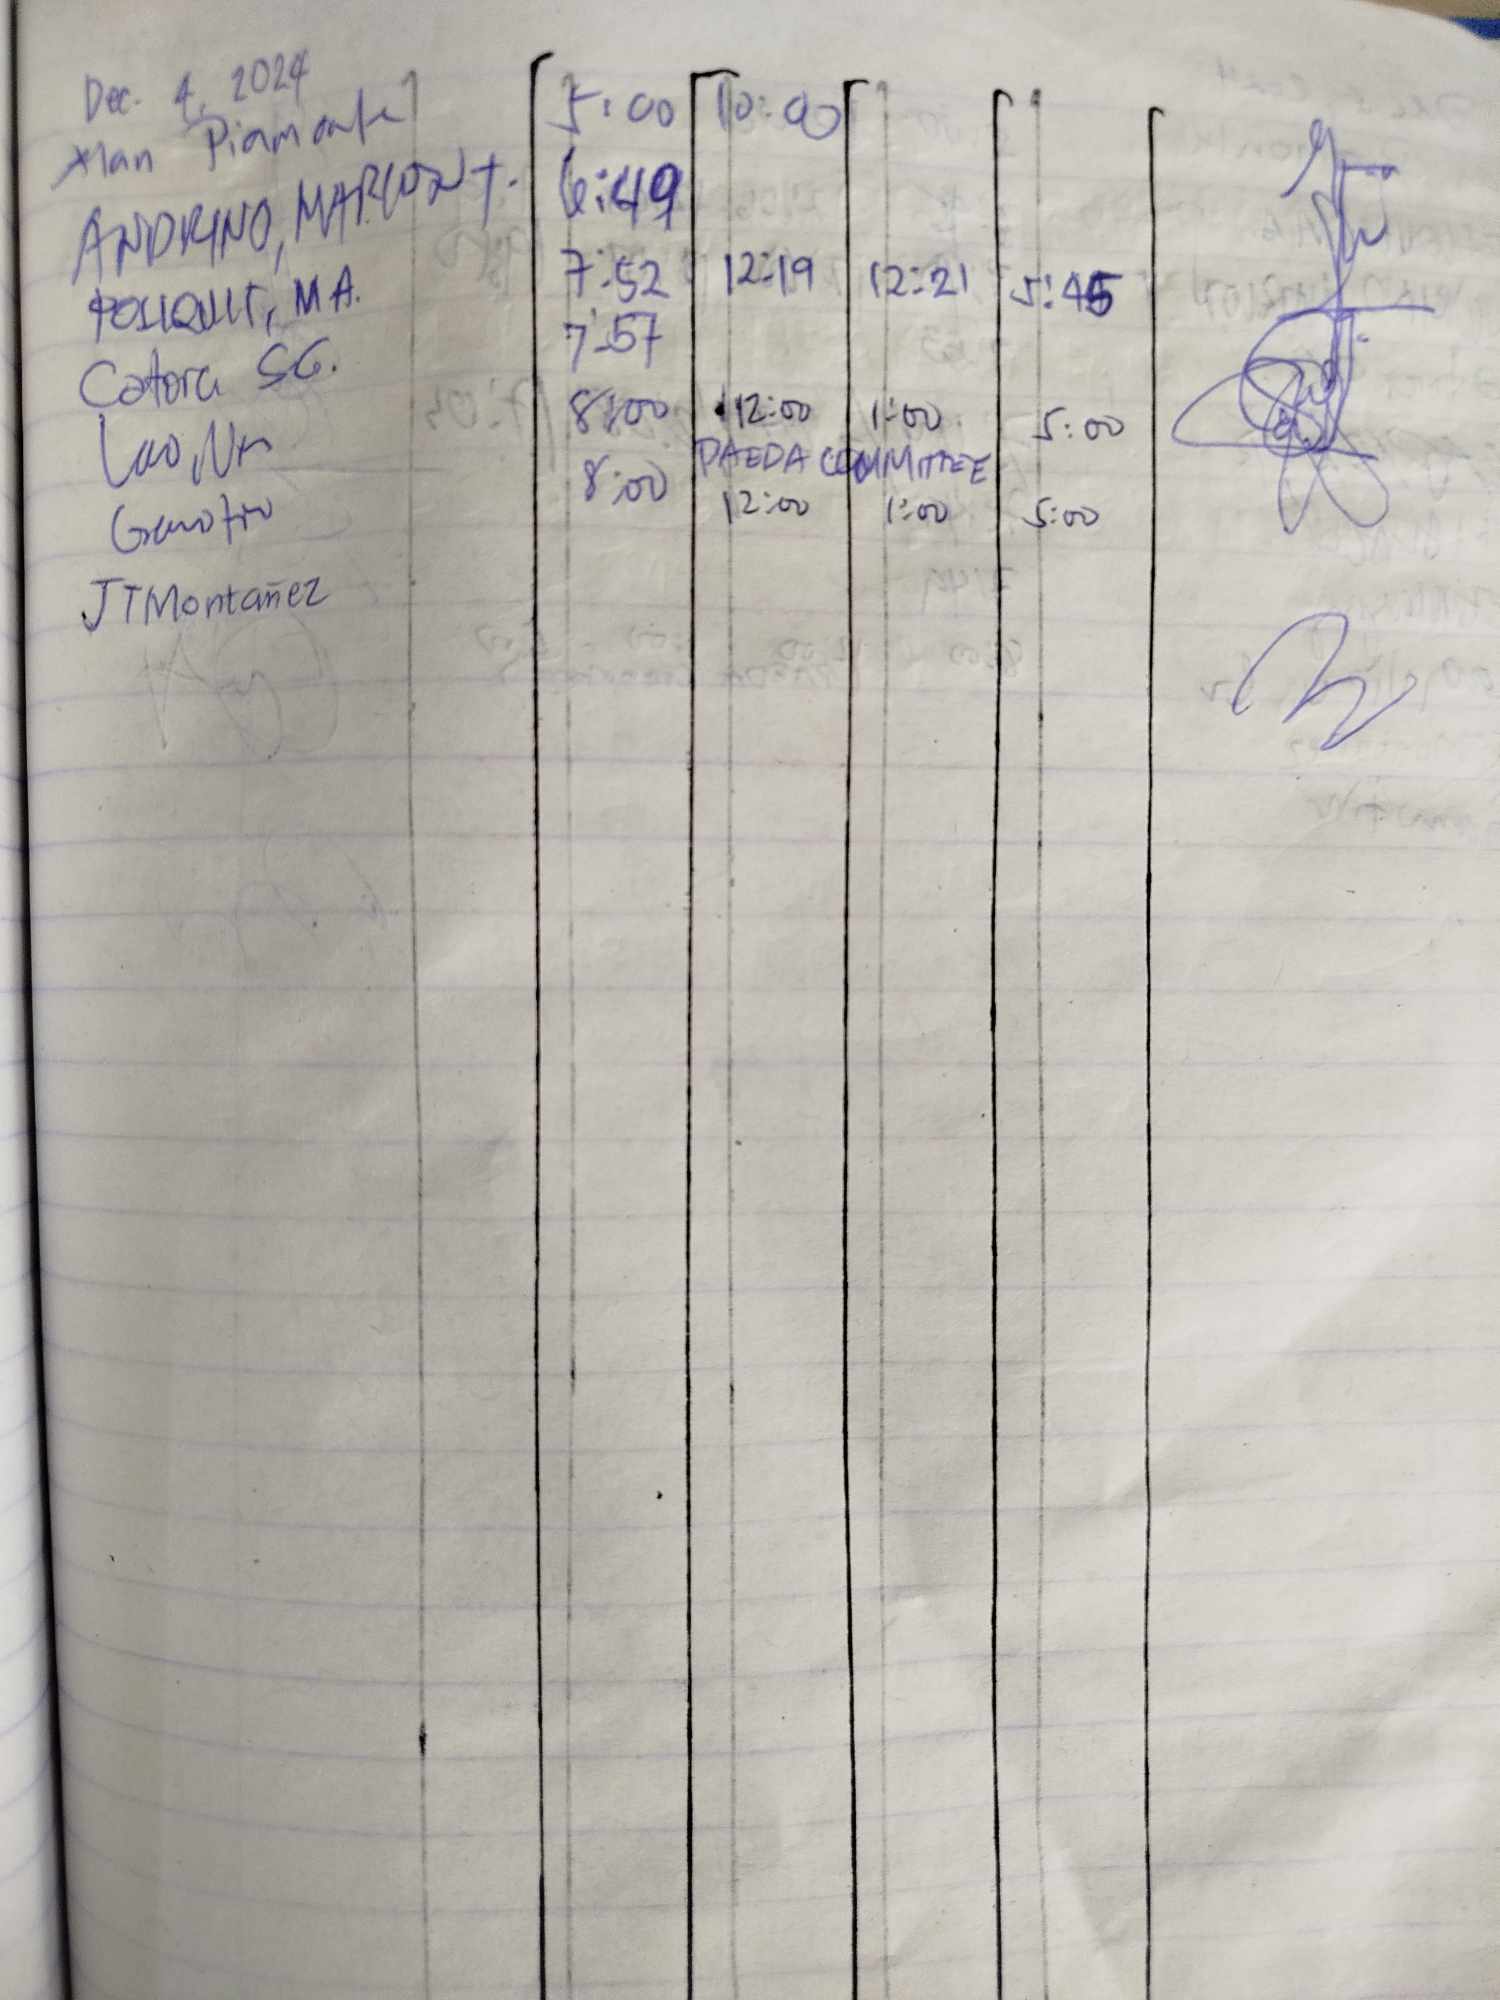 Dec. 4, 2024
Alan Piamonte 5:00 10:00
ANDRINO, MARLON T. 6:49
MA. 7:52 12:19 12:21 5:45
Catora SG. 7:57
Lao, 8:00 12:00 1:00 5:00
PAEDA COMMITTEE
8:00 12:00 1:00 5:00
JTMontañez